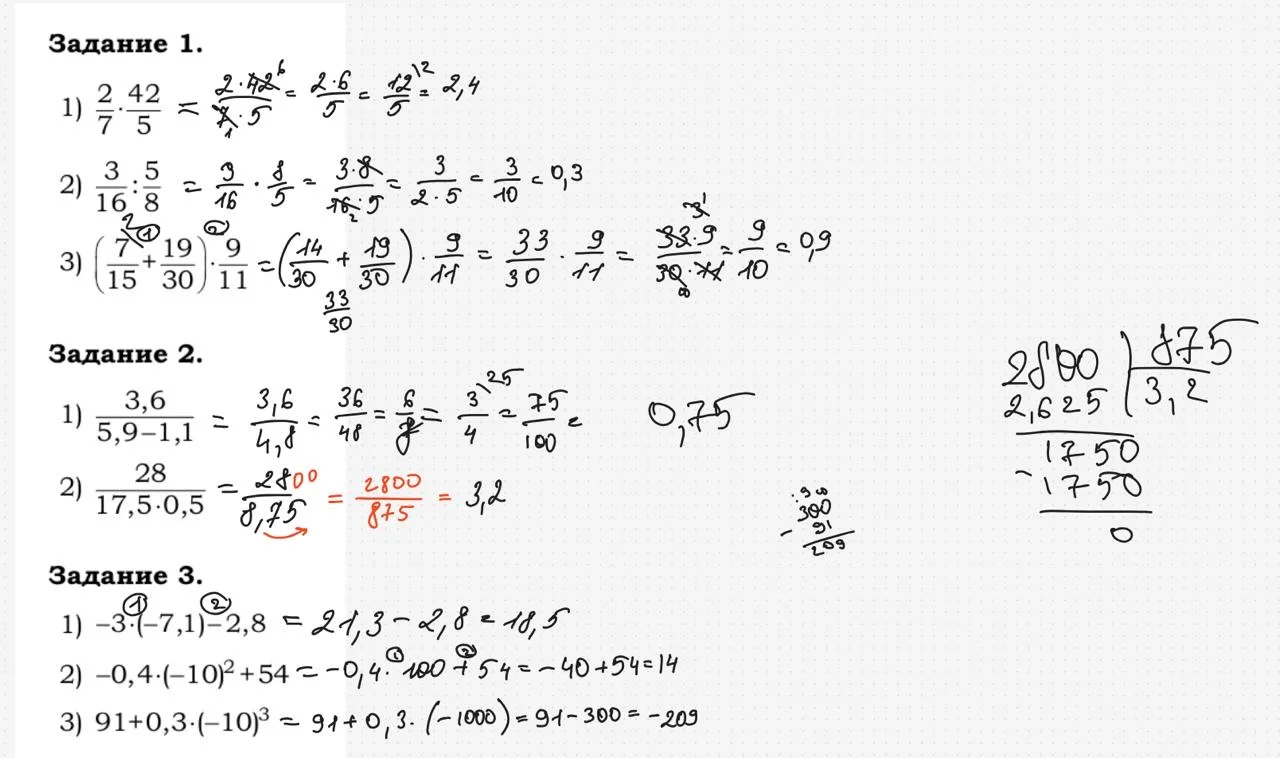 Задание 1.
1) 2/7 · 42/5 = 2·42/7·5 = 2·6/5 = 12/5 = 2,4
6
1
\2
2) 3/16 : 5/8 = 9/16 · 8/5 = 3·8/16·5 = 3/2·5 = 3/10 = 0,3
2
3) (7/15 + 19/30) · 9/11 = (14/30 + 19/30) · 9/11 = 33/30 · 9/11 = 33·9/30·11 = 9/10 = 0,9
2\ 1 2
33/30
Задание 2.
1) 3,6/5,9–1,1 = 3,6/4,8 = 36/48 = 6/8 = 3\25/4 = 75/100 = 0,75
2) 28/17,5·0,5 = 2800/8,75 = 2800/875 = 3,2
2800 875
2,625 3,2
1750
- 1750
0
300
- 91
209
Задание 3.
1) –3·(–7,1)–2,8 = 21,3 – 2,8 = 18,5
1 2
2) –0,4·(–10)² + 54 = –0,4 · 100 + 54 = –40+54=14
1 2
3) 91+0,3·(–10)³ = 91+0,3·(–1000) = 91–300 = –209